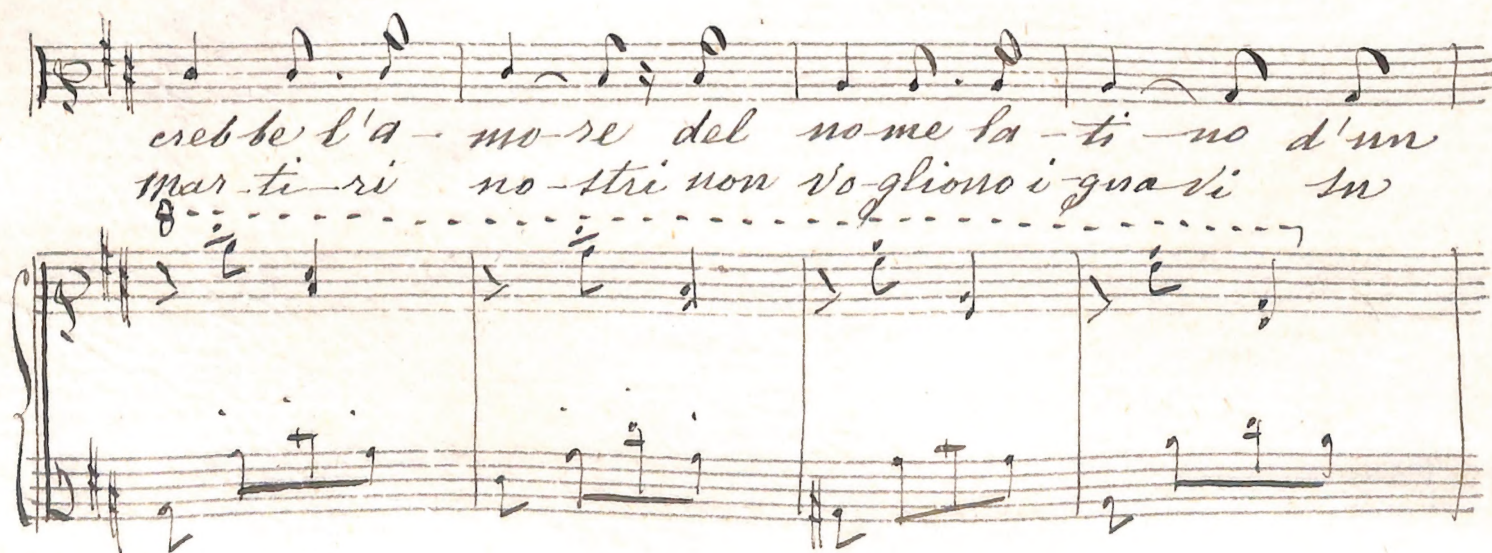 crebbe l'a-mo-re del no-me la-ti-no d'un
mar-ti-ri no-stri non vo-gliono i-gna-vi su
8